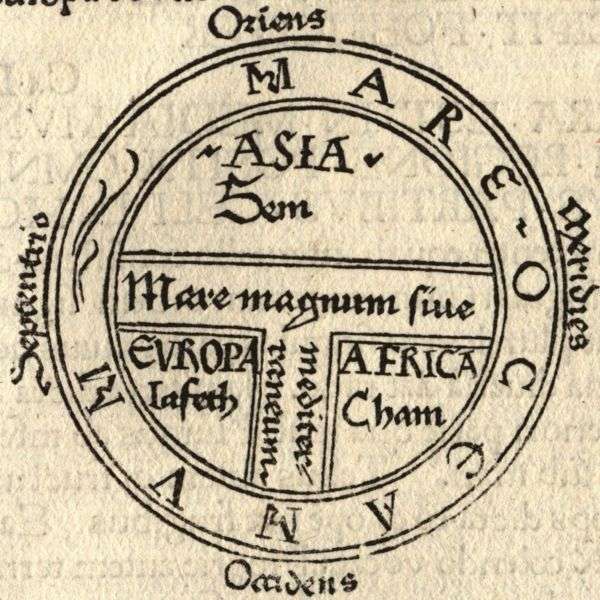 Oriens
MARE OCEANVM
Septentrio
Meridies
ASIA
Sem
Mare magnum siue
mediter
raneum
EVROPA
Iafeth
AFRICA
Cham
Occidens